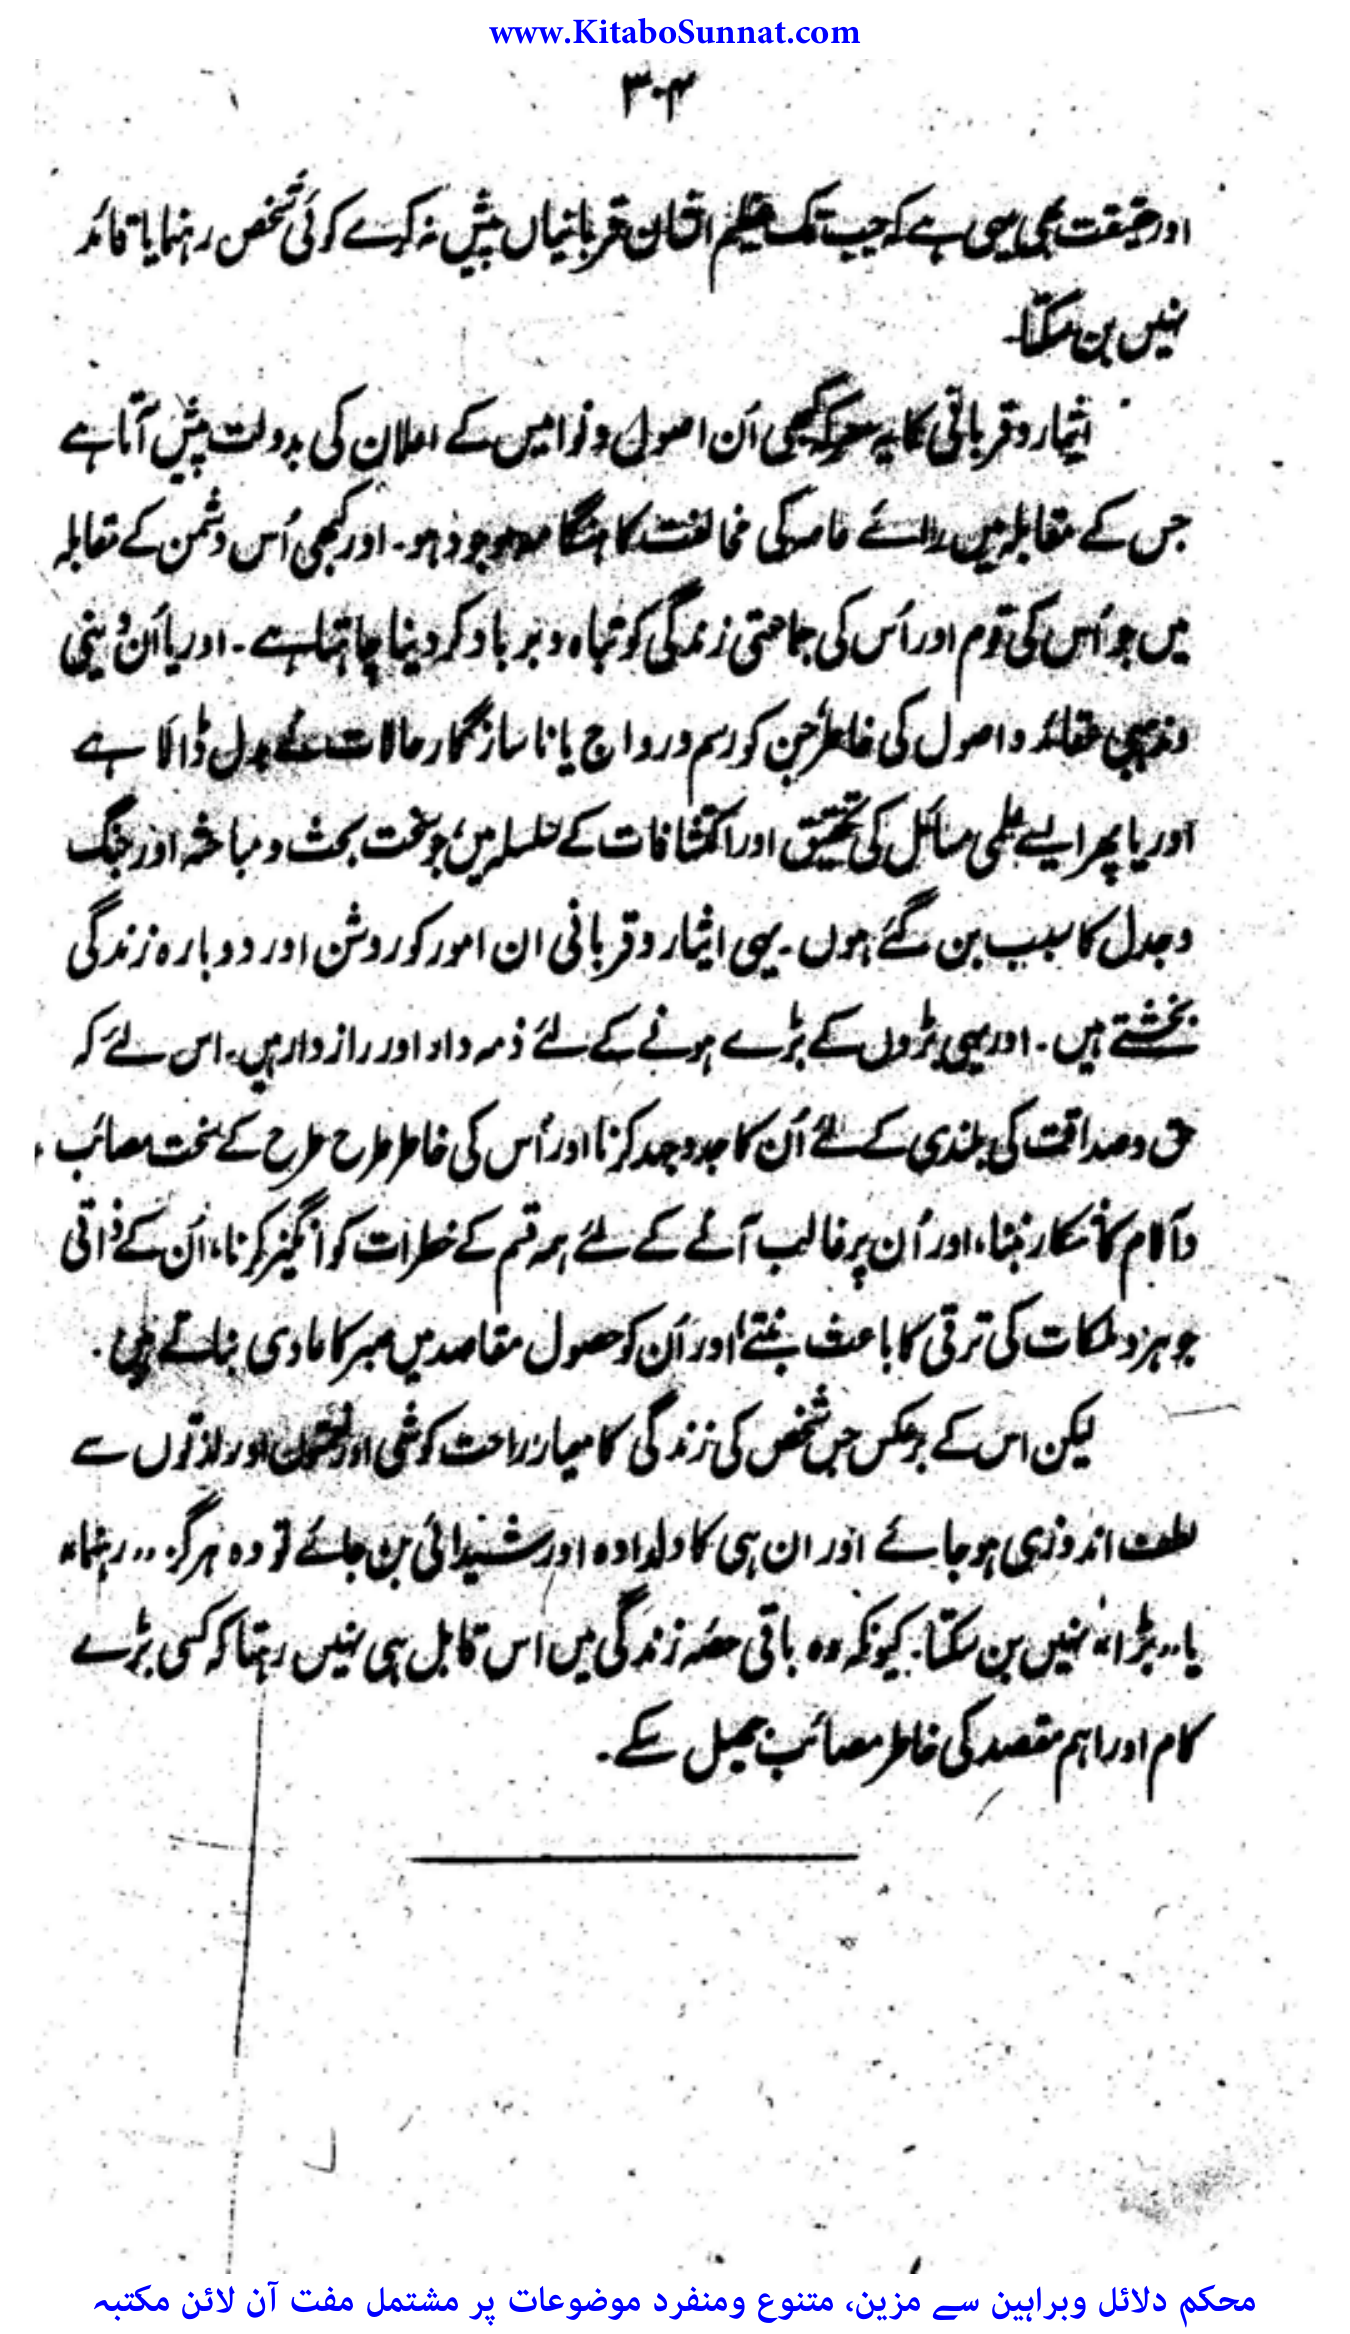 www.KitaboSunnat.com
۳۰۴
اور حقیقت بھی یہی ہے کہ جب تک عظیم الشان قربانیاں پیش نہ کرے کوئی شخص رہنما یا قائد
نہیں بن سکتا۔
ایثار و قربانی کا یہ معرکہ کبھی اُن اصول و نوامیس کے اعلان کی بدولت پیش آتا ہے
جس کے مقابلہ میں رائے عامہ کی مخالفت کا ہنگامہ موجود ہو۔ اور کبھی اُس دشمن کے مقابلہ
میں جو اُس کی قوم اور اُس کی جماعتی زندگی کو تباہ و برباد کر دینا چاہتا ہے۔ اور یا اُن دینی
و مذہبی عقائد و اصول کی خاطر جن کو رسم و رواج یا ناسازگار حالات نے بدل ڈالا ہے
اور یا پھر ایسے علمی مسائل کی تحقیق اور اکتشافات کے سلسلہ میں جو سخت بحث و مباحثہ اور جنگ
و جدل کا سبب بن گئے ہوں۔ یہی ایثار و قربانی ان امور کو روشن اور دوبارہ زندگی
بخشتے ہیں۔ اور یہی بڑوں کے بڑے ہونے کے لئے ذمہ دار اور رازدار ہیں۔ اس لئے کہ
حق و صداقت کی بلندی کے لئے اُن کا جدوجہد کرنا اور اُس کی خاطر طرح طرح کے سخت مصائب
و آلام کا شکار بننا، اور اُن پر غالب آنے کے لئے ہمہ قسم کے خطرات کو انگیز کرنا، اُن کے ذاتی
جوہر و ملکات کی ترقی کا باعث بنتے اور اُن کو حصول مقاصد میں صبر کا عادی بناتے ہیں۔
لیکن اس کے برعکس جس شخص کی زندگی کا معیار راحت کوشی اور نعمتوں اور لذتوں سے
لطف اندوزی ہو جائے اور ان ہی کا دلدادہ اور شیدائی بن جائے تو وہ ہرگز ”رہنما“
یا ”بڑا“ نہیں بن سکتا۔ کیونکہ وہ باقی حصۂ زندگی میں اس قابل ہی نہیں رہتا کہ کسی بڑے
کام اور اہم مقصد کی خاطر مصائب جھیل سکے۔
محکم دلائل وبراہین سے مزین، متنوع ومنفرد موضوعات پر مشتمل مفت آن لائن مکتبہ